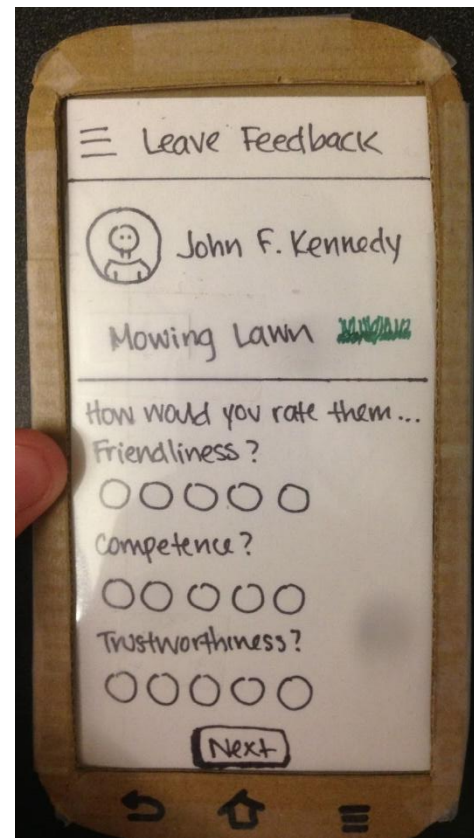 Leave Feedback
John F. Kennedy
Mowing Lawn
How would you rate them...
Friendliness?
Competence?
Trustworthiness?
Next